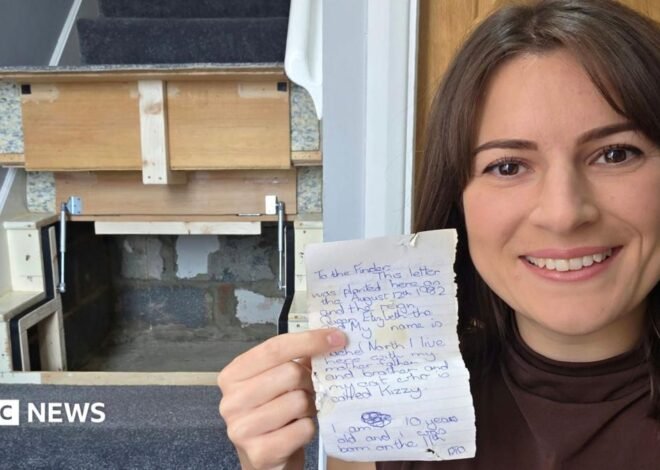 To the Finder
This letter
was planted here on
the August 12th 1982
and the reign
Queen Elizabeth the
My name is
North I live
here with my
mother father
and brother and
my cat who is
called Kizzy
I am 10 years
old and I was
born on the
BBC NEWS